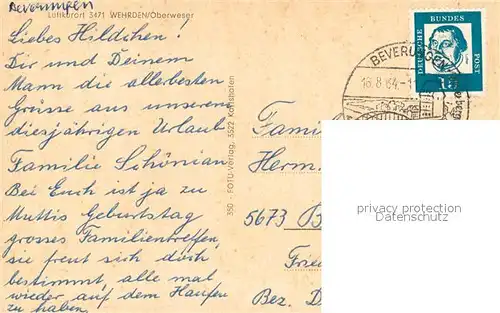 Beverungen
Luftkurort 3471 WEHRDEN/Oberweser
Liebes Hildchen!
Dir und Deinem
Mann die allerbesten
Grüsse aus unserem
diesjährigen Urlaub
Familie Schönian
Bei Euch ist ja zu
Muttis Geburtstag
grosses Familientreffen,
sie freut sich doch
bestimmt, alle mal
wieder auf dem Haufen
zu haben.
350 - FOTU-Verlag, 3522 Karlshafen
DEUTSCHE BUNDESPOST
15
BEVERUNGEN
18.8.64.-1
Fami
Herm.
5673 B
Frie
Bez. D
privacy protection
Datenschutz